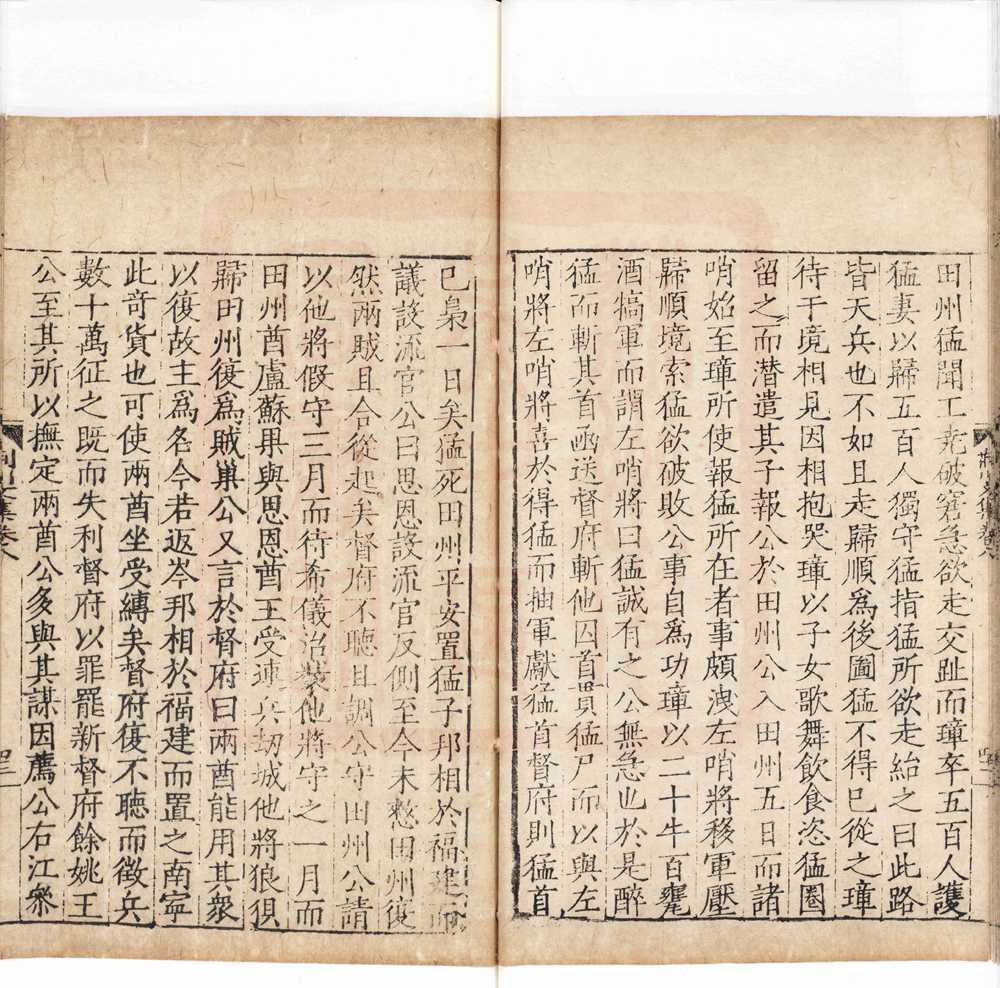 田州猛聞工尭破窘急欲走交趾而璋卒五百人護
猛妻以歸五百人獨守猛指猛所欲走紿之曰此路
皆天兵也不如且走歸順爲後圖猛不得已從之璋
待于境相見因相抱哭璋以子女歌舞飲食恣猛圈
留之而潜遣其子報公於田州公入田州五日而諸
哨始至璋所使報猛所在者事頗洩左哨將移軍壓
歸順境索猛欲破敗公事自爲功璋以二十牛百甕
酒犒軍而謂左哨將曰猛誠有之公無急也於是醉
猛而斬其首函送督府斬他囚首貫猛尸而以與左
哨將左哨將喜於得猛而抽軍獻猛首督府則猛首
已梟一日矣猛死田州平安置猛子邦相於福建而
議設流官公曰思恩設流官反側至今未憗田州復
然兩賊且合從起矣督府不聽且調公守田州公請
以他將假守三月而待希儀治裝他將守之一月而
田州酋盧蘇果與思恩酋王受連兵劫城他將狼狽
歸田州復爲賊巢公又言於督府曰兩酋能用其衆
以復故主爲名今若返岑邦相於福建而置之南寧
此奇貨也可使兩酋坐受縛矣督府復不聽而徵兵
數十萬征之既而失利督府以罪罷新督府餘姚王
公至其所以撫定兩酋公多與其謀因薦公右江叅